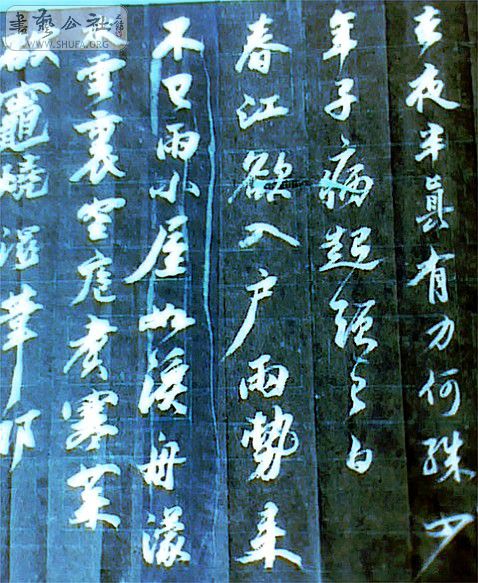 去夜半真有力何殊少
年子病起頭已白
春江欲入戶雨勢來
不已雨小屋如漁舟濛
雲裏空庖煮寒菜
竈燒濕葦
書藝公社
WWW.SHUFA.ORG